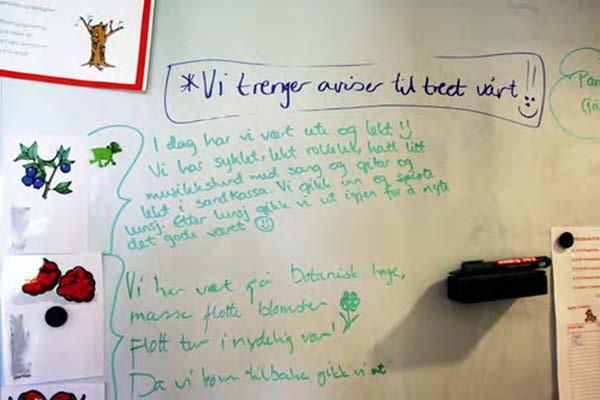 *Vi trenger aviser til treet vårt!!
I dag har vi vært ute og lekt!!
Vi har syklet, lekt rollelek, hatt litt
musikkstund med sang og gitar og
lekt i sandkassa. Vi gikk inn og spiste
lunsj. Etter lunsj gikk vi ut igjen for å nyte
det gode været
Vi har vært på botanisk hage,
masse flotte blomster
Flott tur i nydelig vær!
Da vi kom tilbake gikk vi ut